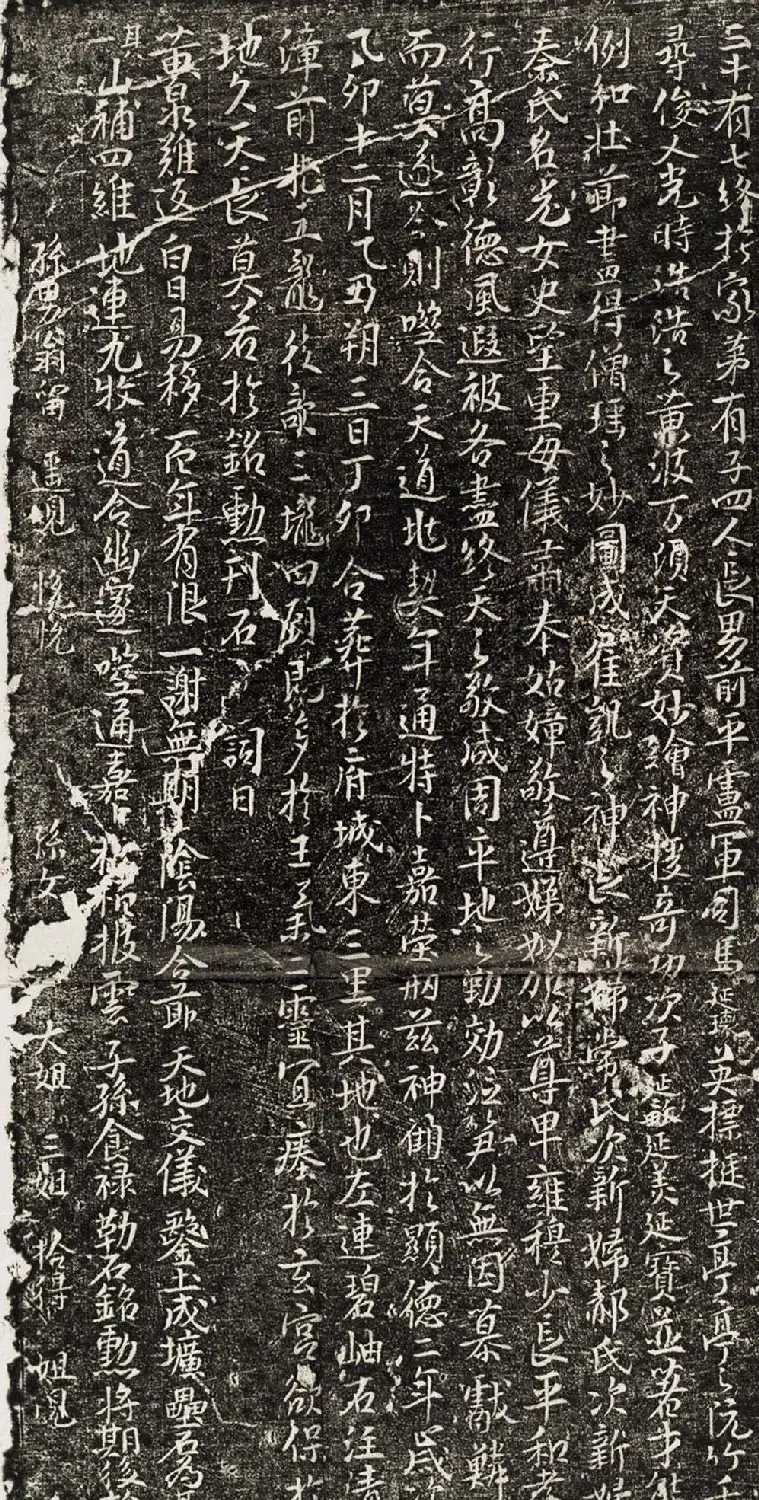 三十有七終於家第有子四人長男前平盧軍司馬延德英標挺世亭亭之阮竹千
尋俊人光時浩浩之黃波万頃天資妙繪神授奇功次子延韜延美延寶並著才能
例知壯節盡得僧瑤之妙圖成崔凱之神長新婦常氏次新婦郝氏次新婦
秦氏名光女史望重母儀肅奉姑嫜敬遵娣姒加以尊卑雍穆少長平和孝
行高彰德風遐被各盡終天之敬咸周平地之勤効泣筍以無因慕獻鱗
而莫遂公則噬合天道兆契年通特卜嘉塋用茲神俯於顯德二年歲次
乙卯十二月乙丑朔三日丁卯合葬於府城東三里其地也左連碧岫右注清
漳前花立龍後敧三壠四顧既多於王氣二靈冝瘞於玄宮欲保於
地久天長莫若於銘勳刊石乃詞曰
黃泉維返白日易移百年有限一謝無期蔭陽合節天地交儀鑿土成壙壘石為
其一山補四維地連九牧道合幽邃噬通嘉卜松柏披雲子孫食祿勒石銘勳將期後
孫男翁留 孫女大姐三姐拾得姐兒